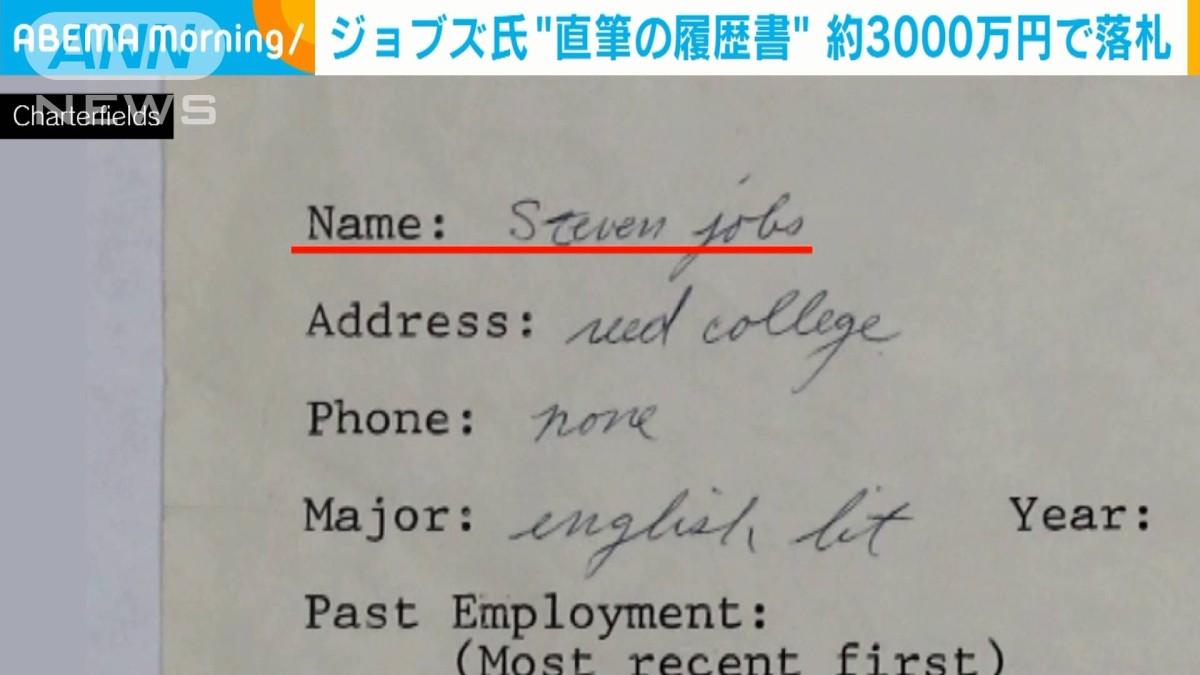 ABEMA Morning/
ジョブズ氏"直筆の履歴書" 約3000万円で落札
ANN
NEWS
Charterfields
Name: Steven jobs
Address: reed college
Phone: none
Major: english lit Year:
Past Employment:
(Most recent first)